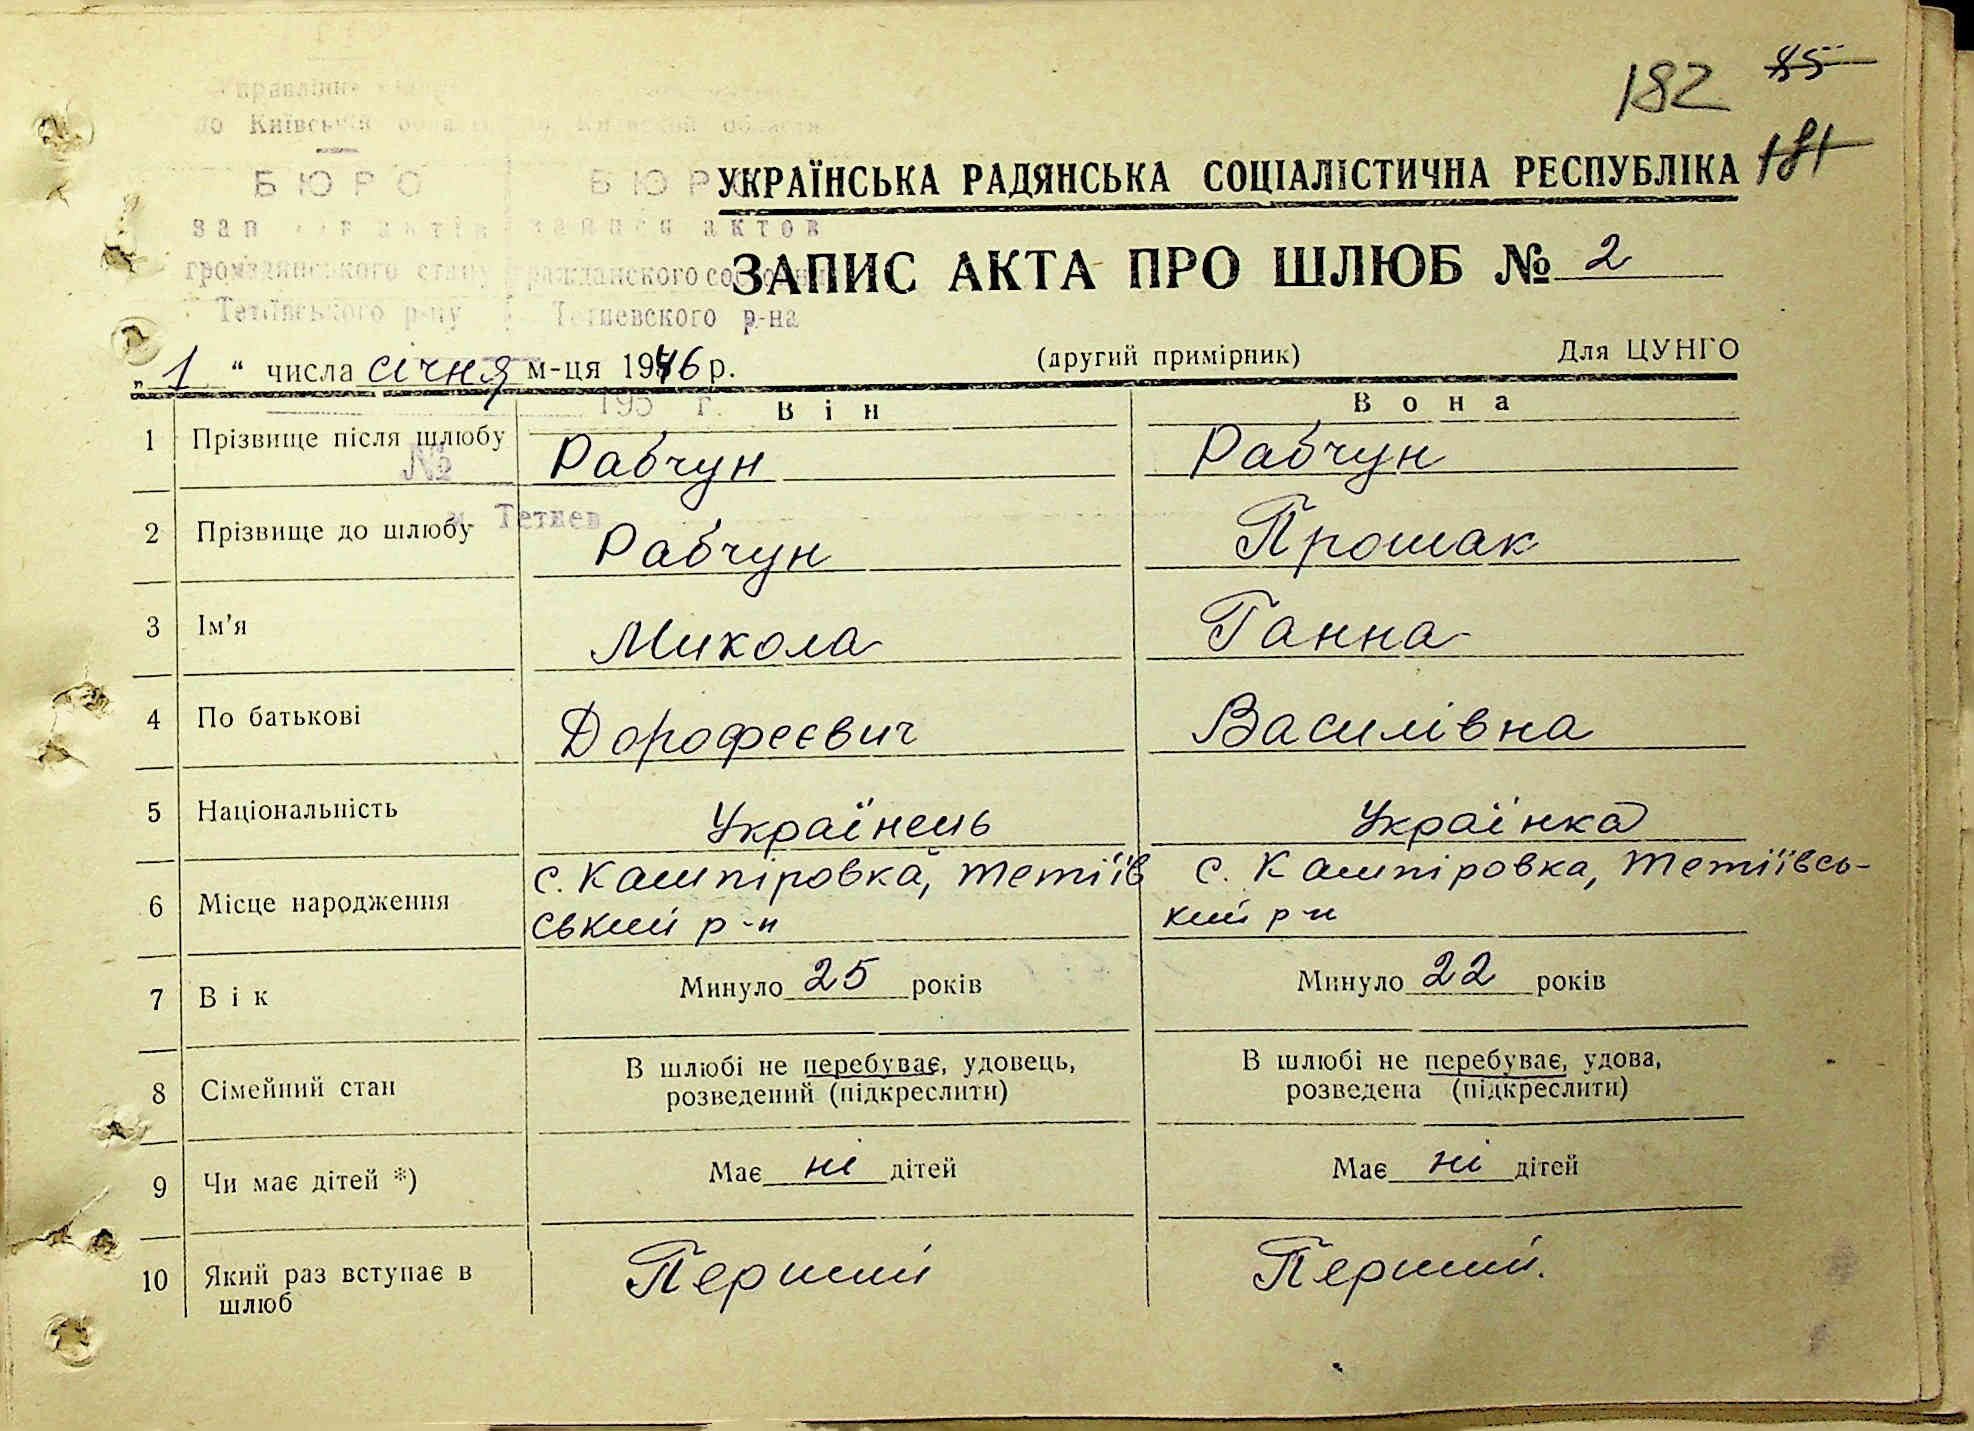 182 85
по Київській області по Киевской области
БЮРО БЮРО
УКРАЇНСЬКА РАДЯНСЬКА СОЦІАЛІСТИЧНА РЕСПУБЛІКА 181
записи актов
ЗАПИС АКТА ПРО ШЛЮБ № 2
громадянського стану гражданского состояния
Тетіївського р-ну Тетиевского р-на
„ 1 “ числа січня м-ця 1946 р. (другий примірник) Для ЦУНГО
195 г. Він Вона
1 Прізвище після шлюбу Рабчун Рабчун
№
м. Тетиев
2 Прізвище до шлюбу Рабчун Прошак
3 Ім'я Микола Ганна
4 По батькові Дорофеєвич Василівна
5 Національність Українець Українка
6 Місце народження с. Кашпіровка, Тетіїв с. Кашпіровка, Тетіївсь-
ський р-н кий р-н
7 Вік Минуло 25 років Минуло 22 років
8 Сімейний стан В шлюбі не перебуває, удовець, В шлюбі не перебуває, удова,
розведений (підкреслити) розведена (підкреслити)
9 Чи має дітей *) Має ні дітей Має ні дітей
10 Який раз вступає в Перший Перший.
шлюб